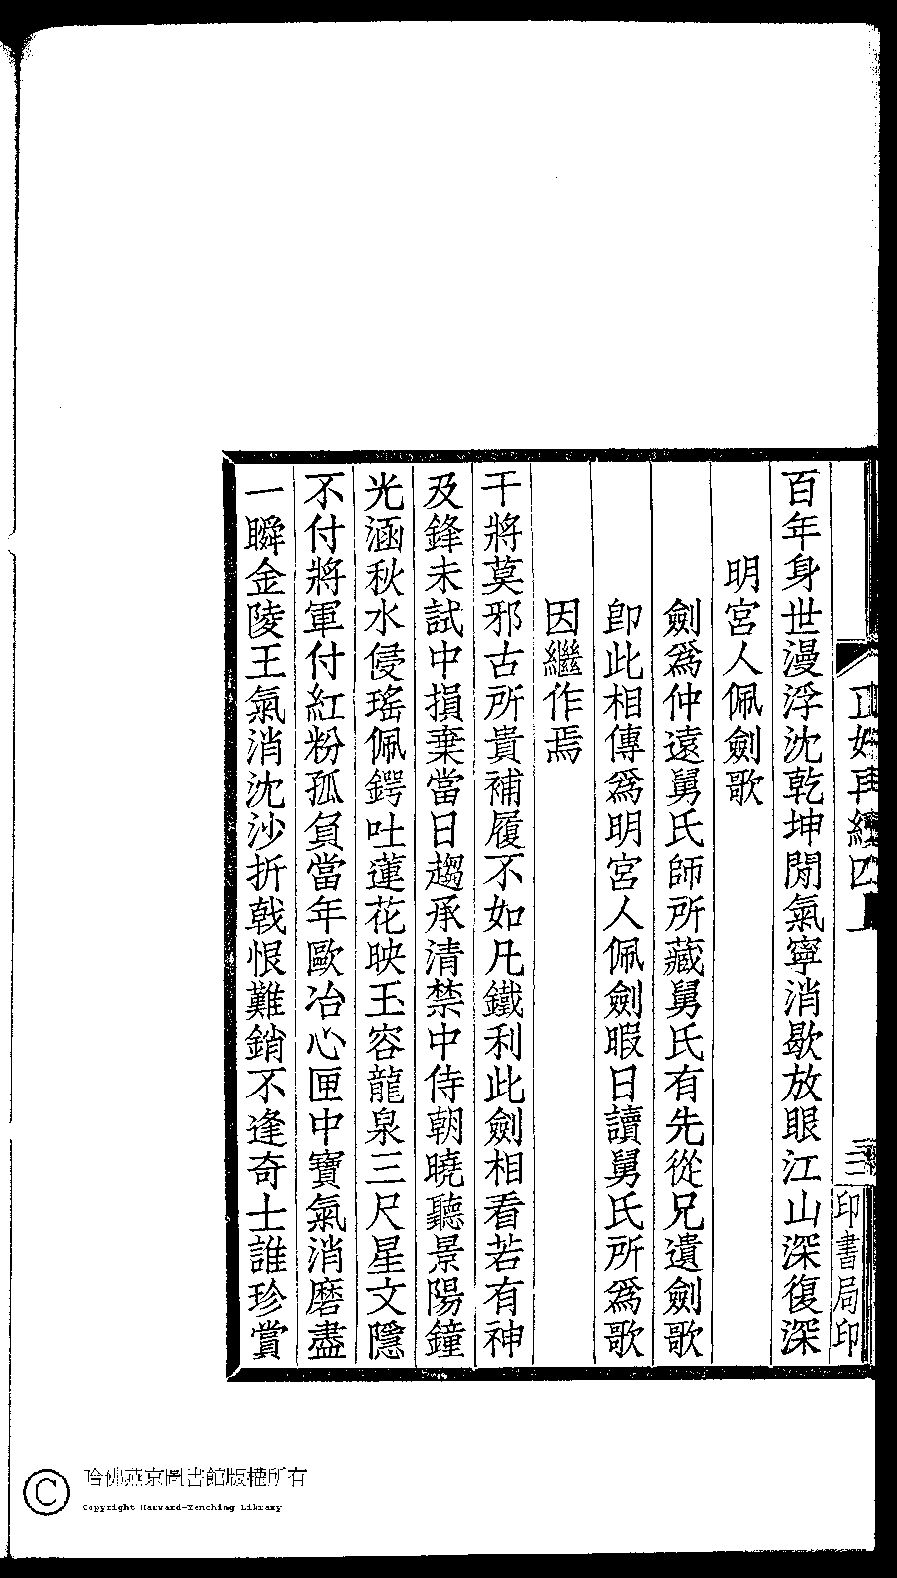 百年身世漫浮沈乾坤閒氣寧消歇放眼江山深復深
明宮人佩劍歌
劍爲仲遠舅氏師所藏舅氏有先從兄遺劍歌
卽此相傳爲明宮人佩劍暇日讀舅氏所爲歌
因繼作焉
干將莫邪古所貴補履不如凡鐵利此劍相看若有神
及鋒未試中損棄當日趨承清禁中侍朝曉聽景陽鐘
光涵秋水侵瑤佩鍔吐蓮花映玉容龍泉三尺星文隱
不付將軍付紅粉孤負當年歐冶心匣中寶氣消磨盡
一瞬金陵王氣消沈沙折戟恨難銷不逢奇士誰珍賞
三
印書局印
哈佛燕京圖書館版權所有
Copyright Harvard-Yenching Library